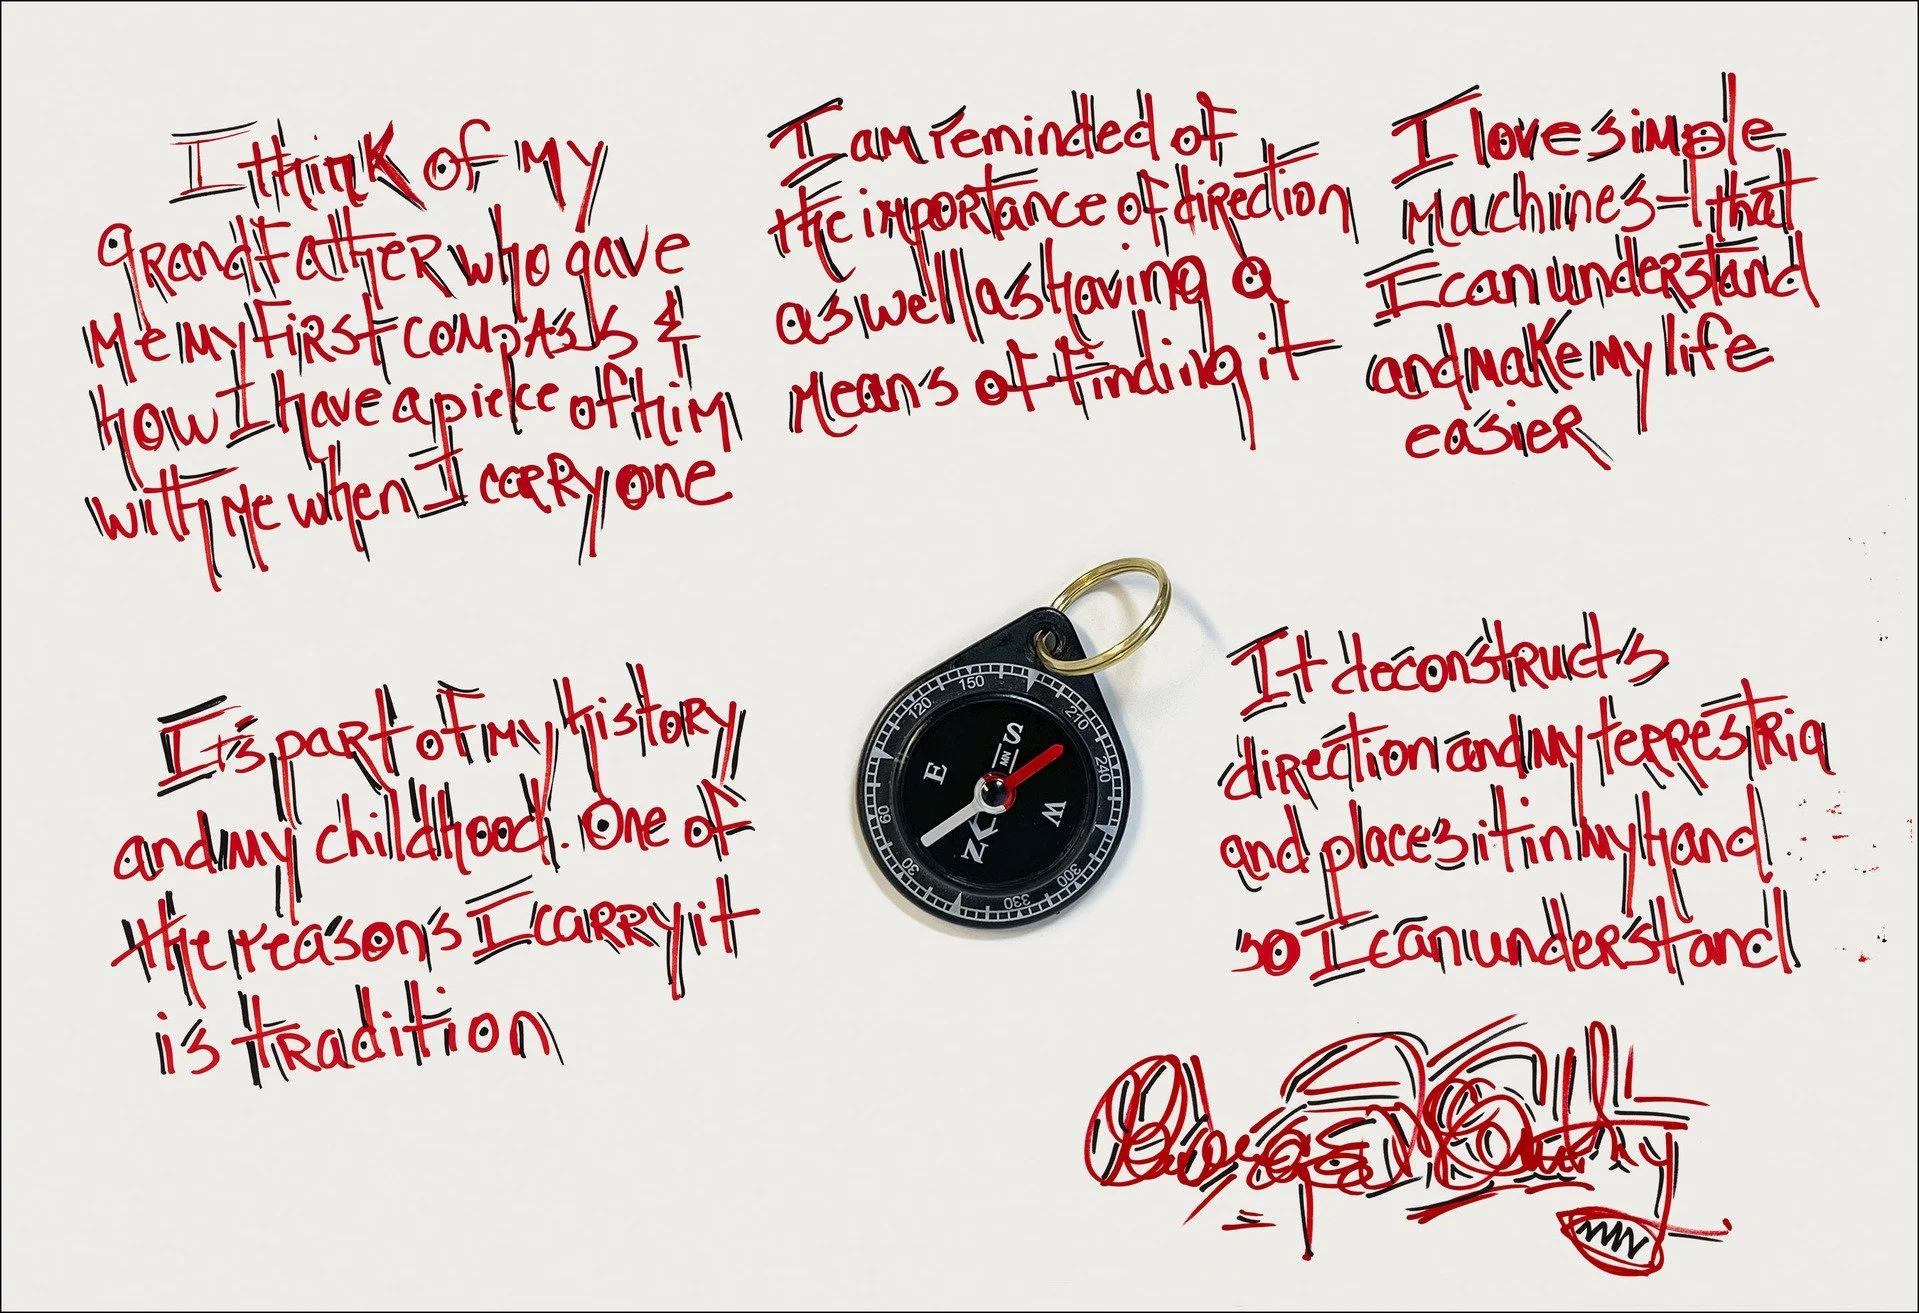 I think of my
grandfather who gave
me my first compass &
how I have a piece of him
with me when I carry one
I am reminded of
the importance of direction
as well as having a
means of finding it
I love simple
machines - that
I can understand
and make my life
easier
Its part of my history
and my childhood. One of
the reasons I carry it
is tradition
150
120
210
240
S
MN
E
W
N
60
30
330
300
It deconstructs
direction and my terrestria
and places it in my hand
so I can understand